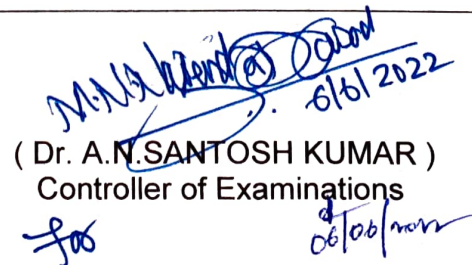 6/6/2022
( Dr. A.N.SANTOSH KUMAR )
Controller of Examinations
for
06/06/2022